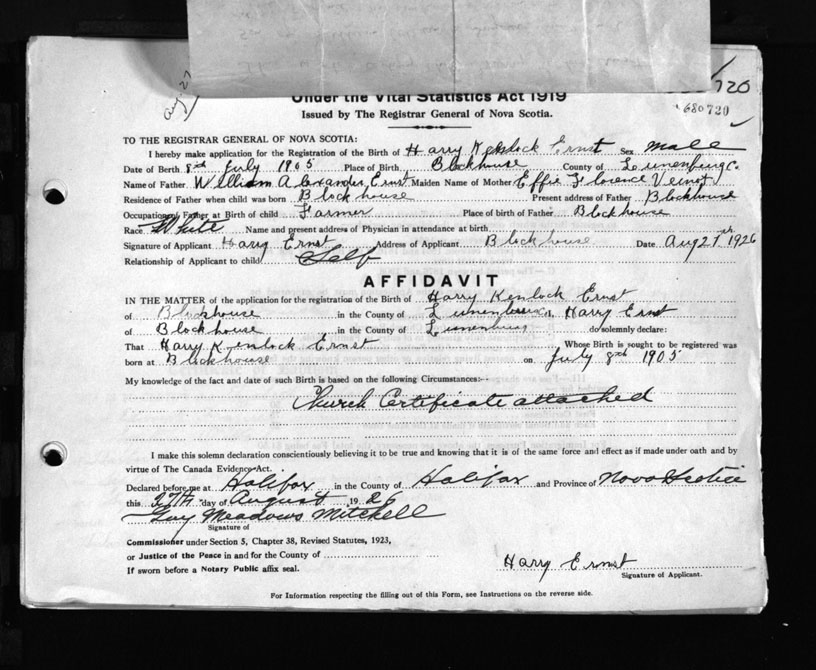 Aug 27
720
680720
Under the Vital Statistics Act 1919
Issued by The Registrar General of Nova Scotia.
TO THE REGISTRAR GENERAL OF NOVA SCOTIA:
I hereby make application for the Registration of the Birth of Harry Kenlock Ernst Sex Male
Date of Birth 8rd July 1905 Place of Birth, Blockhouse County of Lunenburg Co.
Name of Father William Alexander Ernst Maiden Name of Mother Effie Florence Veinot
Residence of Father when child was born Blockhouse Present address of Father Blockhouse
Occupation of Father at Birth of child Farmer Place of birth of Father Blockhouse
Race White Name and present address of Physician in attendance at birth
Signature of Applicant Harry Ernst Address of Applicant Blockhouse Date Aug 27th 1926
Relationship of Applicant to child Self
AFFIDAVIT
IN THE MATTER of the application for the registration of the Birth of Harry Kenlock Ernst
of Blockhouse in the County of Lunenburg I, Harry Ernst
of Blockhouse in the County of Lunenburg do solemnly declare:
That Harry Kenlock Ernst Whose Birth is sought to be registered was
born at Blockhouse on July 8rd 1905
My knowledge of the fact and date of such Birth is based on the following Circumstances:--
Church Certificate attached
I make this solemn declaration conscientiously believing it to be true and knowing that it is of the same force and effect as if made under oath and by
virtue of The Canada Evidence Act.
Declared before me at Halifax in the County of Halifax and Province of Nova Scotia
this 27th day of August 1926
Guy Meadows Mitchell
Signature of
Commissioner under Section 5, Chapter 38, Revised Statutes, 1923,
or Justice of the Peace in and for the County of
If sworn before a Notary Public affix seal.
Harry Ernst
Signature of Applicant.
For Information respecting the filling out of this Form, see Instructions on the reverse side.